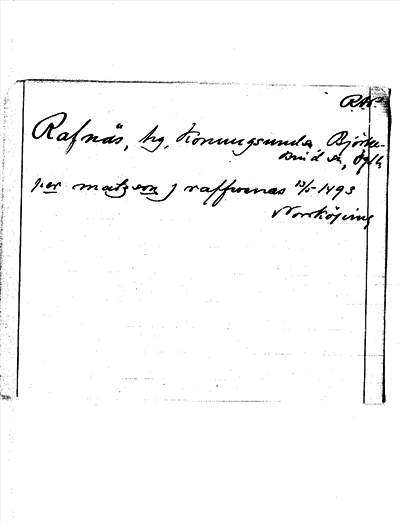 RAP.
Rafnäs, hg, Konungsunda, Björke-
kinds hd, Ögld
per matzson j raffwenas 13/5 1493
Norrköping